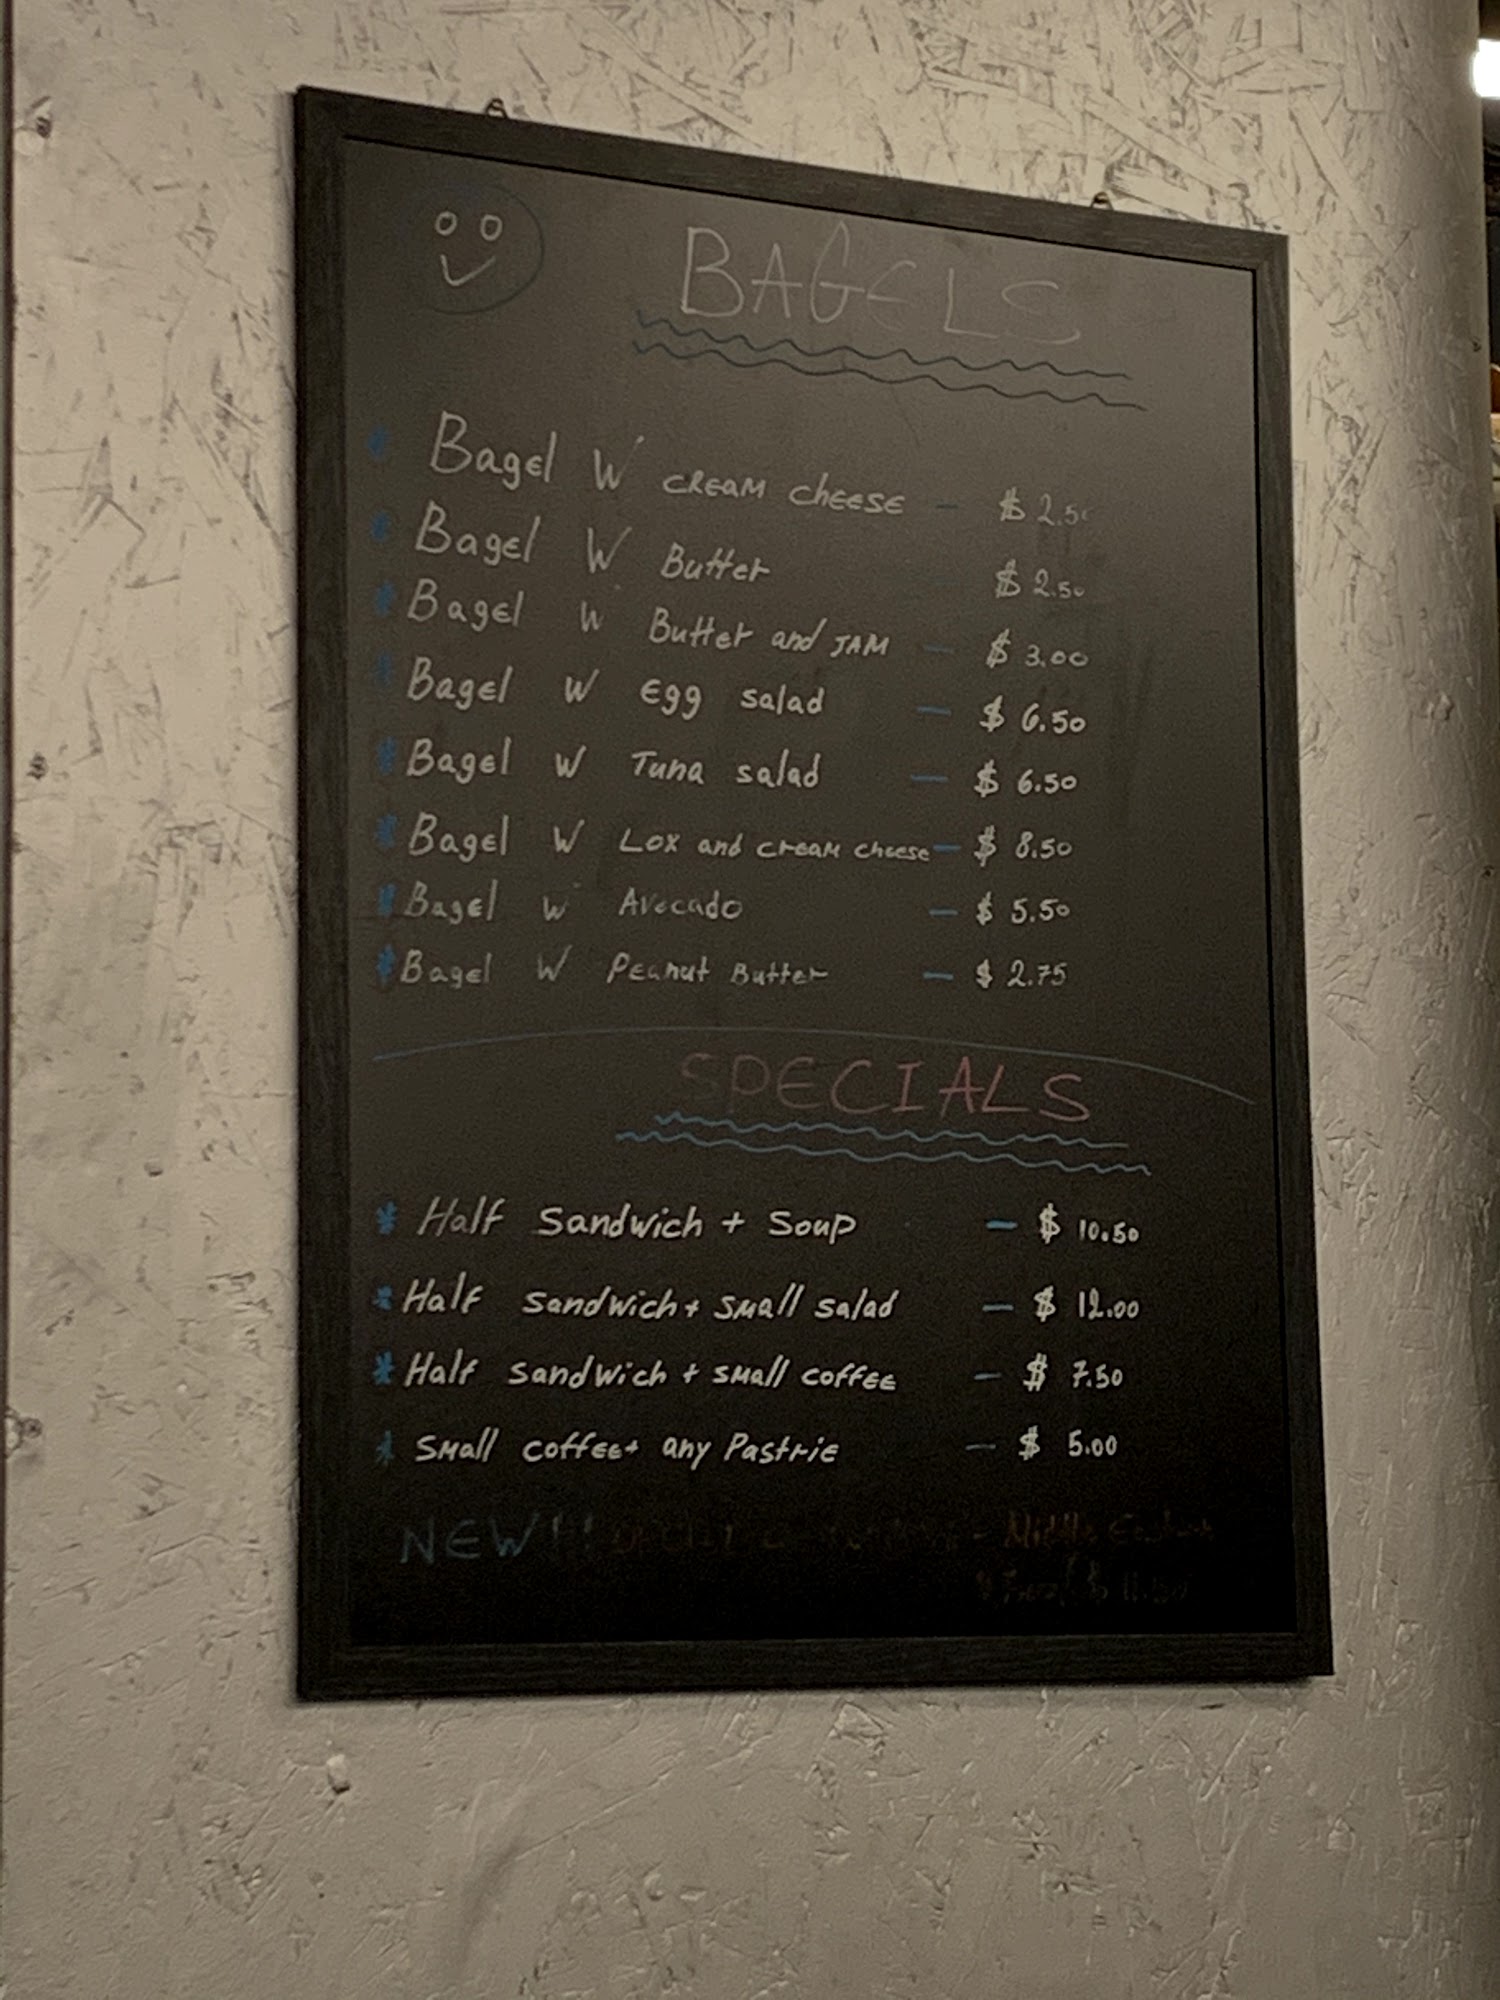 BAGELS
* Bagel W cream cheese - $ 2.50
* Bagel W Butter - $ 2.50
* Bagel W Butter and JAM - $ 3.00
* Bagel W Egg salad - $ 6.50
* Bagel W Tuna salad - $ 6.50
* Bagel W Lox and cream cheese - $ 8.50
* Bagel W Avocado - $ 5.50
* Bagel W Peanut Butter - $ 2.75
SPECIALS
* Half Sandwich + Soup - $ 10.50
* Half sandwich + small salad - $ 12.00
* Half sandwich + small coffee - $ 7.50
* Small coffee + any Pastrie - $ 5.00
NEW!! - Middle